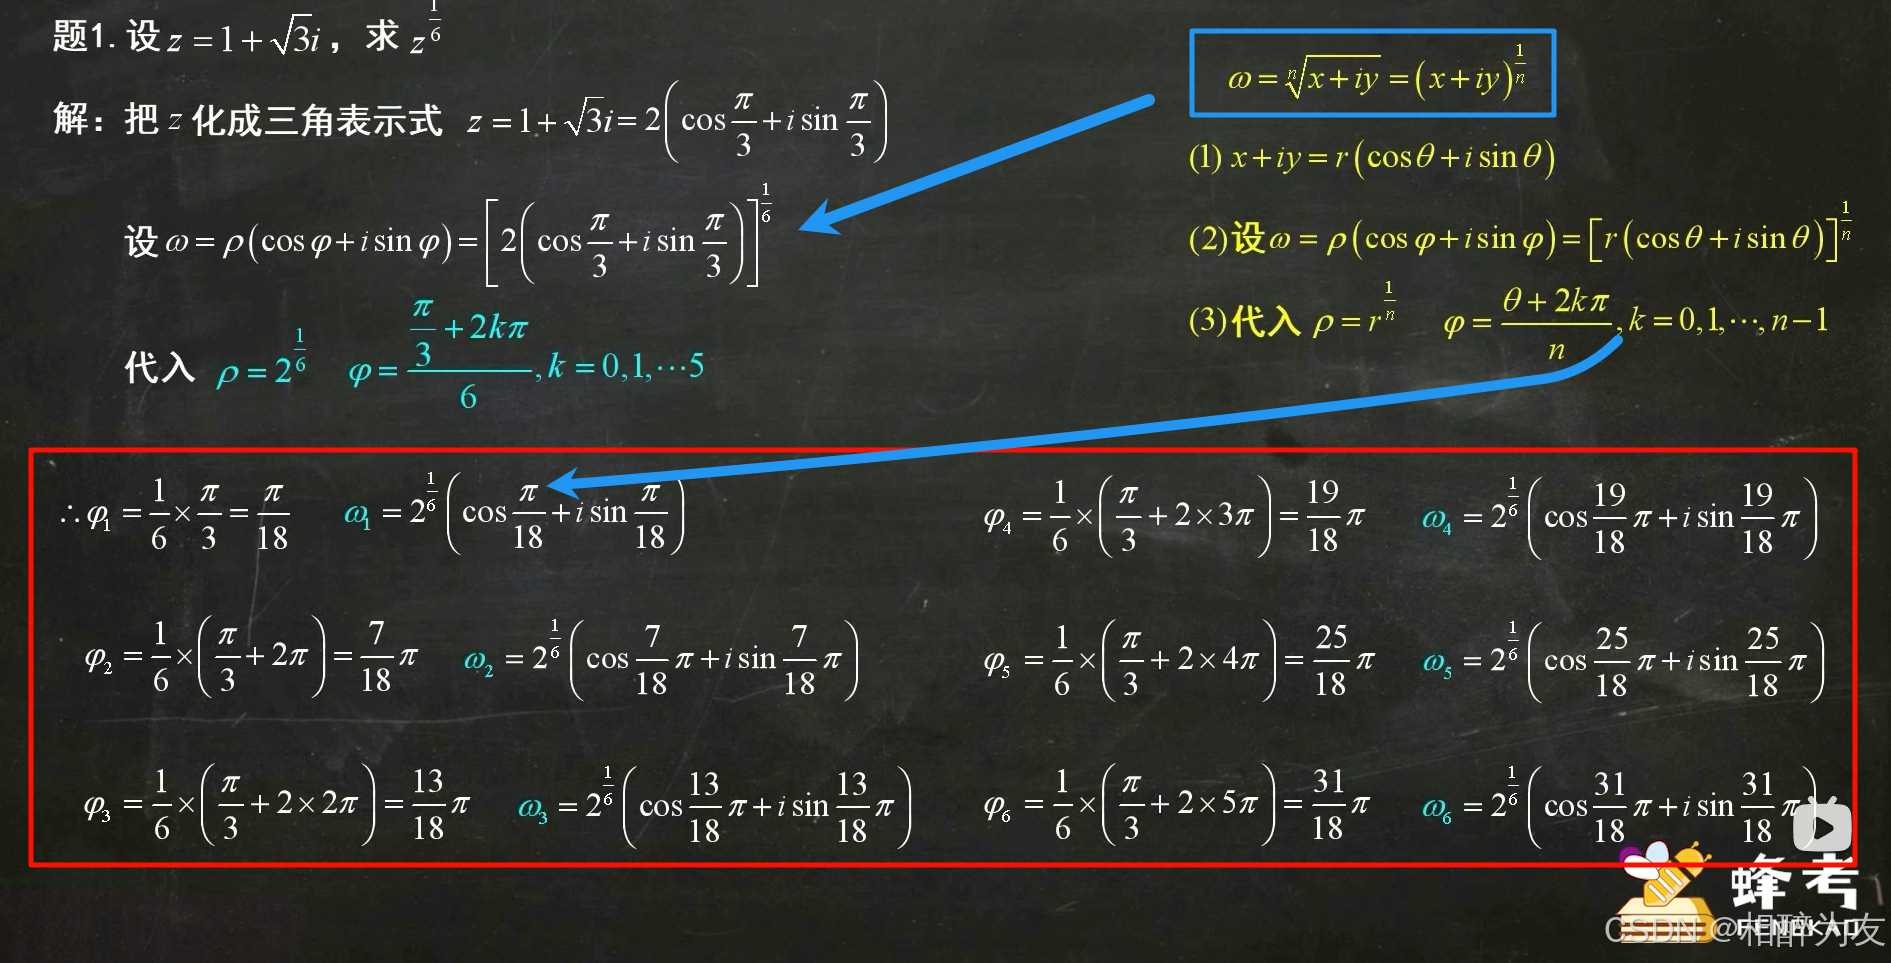 题1.设 z = 1 + √3i ，求 z^(1/6)
解：把 z 化成三角表示式 z = 1 + √3i = 2(cos π/3 + i sin π/3)
设 ω = ρ(cos φ + i sin φ) = [2(cos π/3 + i sin π/3)]^(1/6)
代入 ρ = 2^(1/6) φ = (π/3 + 2kπ)/6, k = 0,1,⋯5
ω = ⁿ√(x + iy) = (x + iy)^(1/n)
(1) x + iy = r(cos θ + i sin θ)
(2)设 ω = ρ(cos φ + i sin φ) = [r(cos θ + i sin θ)]^(1/n)
(3)代入 ρ = r^(1/n) φ = (θ + 2kπ)/n, k = 0,1,⋯,n−1
∴ φ₁ = 1/6 × π/3 = π/18 ω₁ = 2^(1/6)(cos π/18 + i sin π/18)
φ₂ = 1/6 × (π/3 + 2π) = 7/18 π ω₂ = 2^(1/6)(cos 7/18 π + i sin 7/18 π)
φ₃ = 1/6 × (π/3 + 2×2π) = 13/18 π ω₃ = 2^(1/6)(cos 13/18 π + i sin 13/18 π)
φ₄ = 1/6 × (π/3 + 2×3π) = 19/18 π ω₄ = 2^(1/6)(cos 19/18 π + i sin 19/18 π)
φ₅ = 1/6 × (π/3 + 2×4π) = 25/18 π ω₅ = 2^(1/6)(cos 25/18 π + i sin 25/18 π)
φ₆ = 1/6 × (π/3 + 2×5π) = 31/18 π ω₆ = 2^(1/6)(cos 31/18 π + i sin 31/18 π)
蜂考
FENGKAO
CSDN @相醉为友